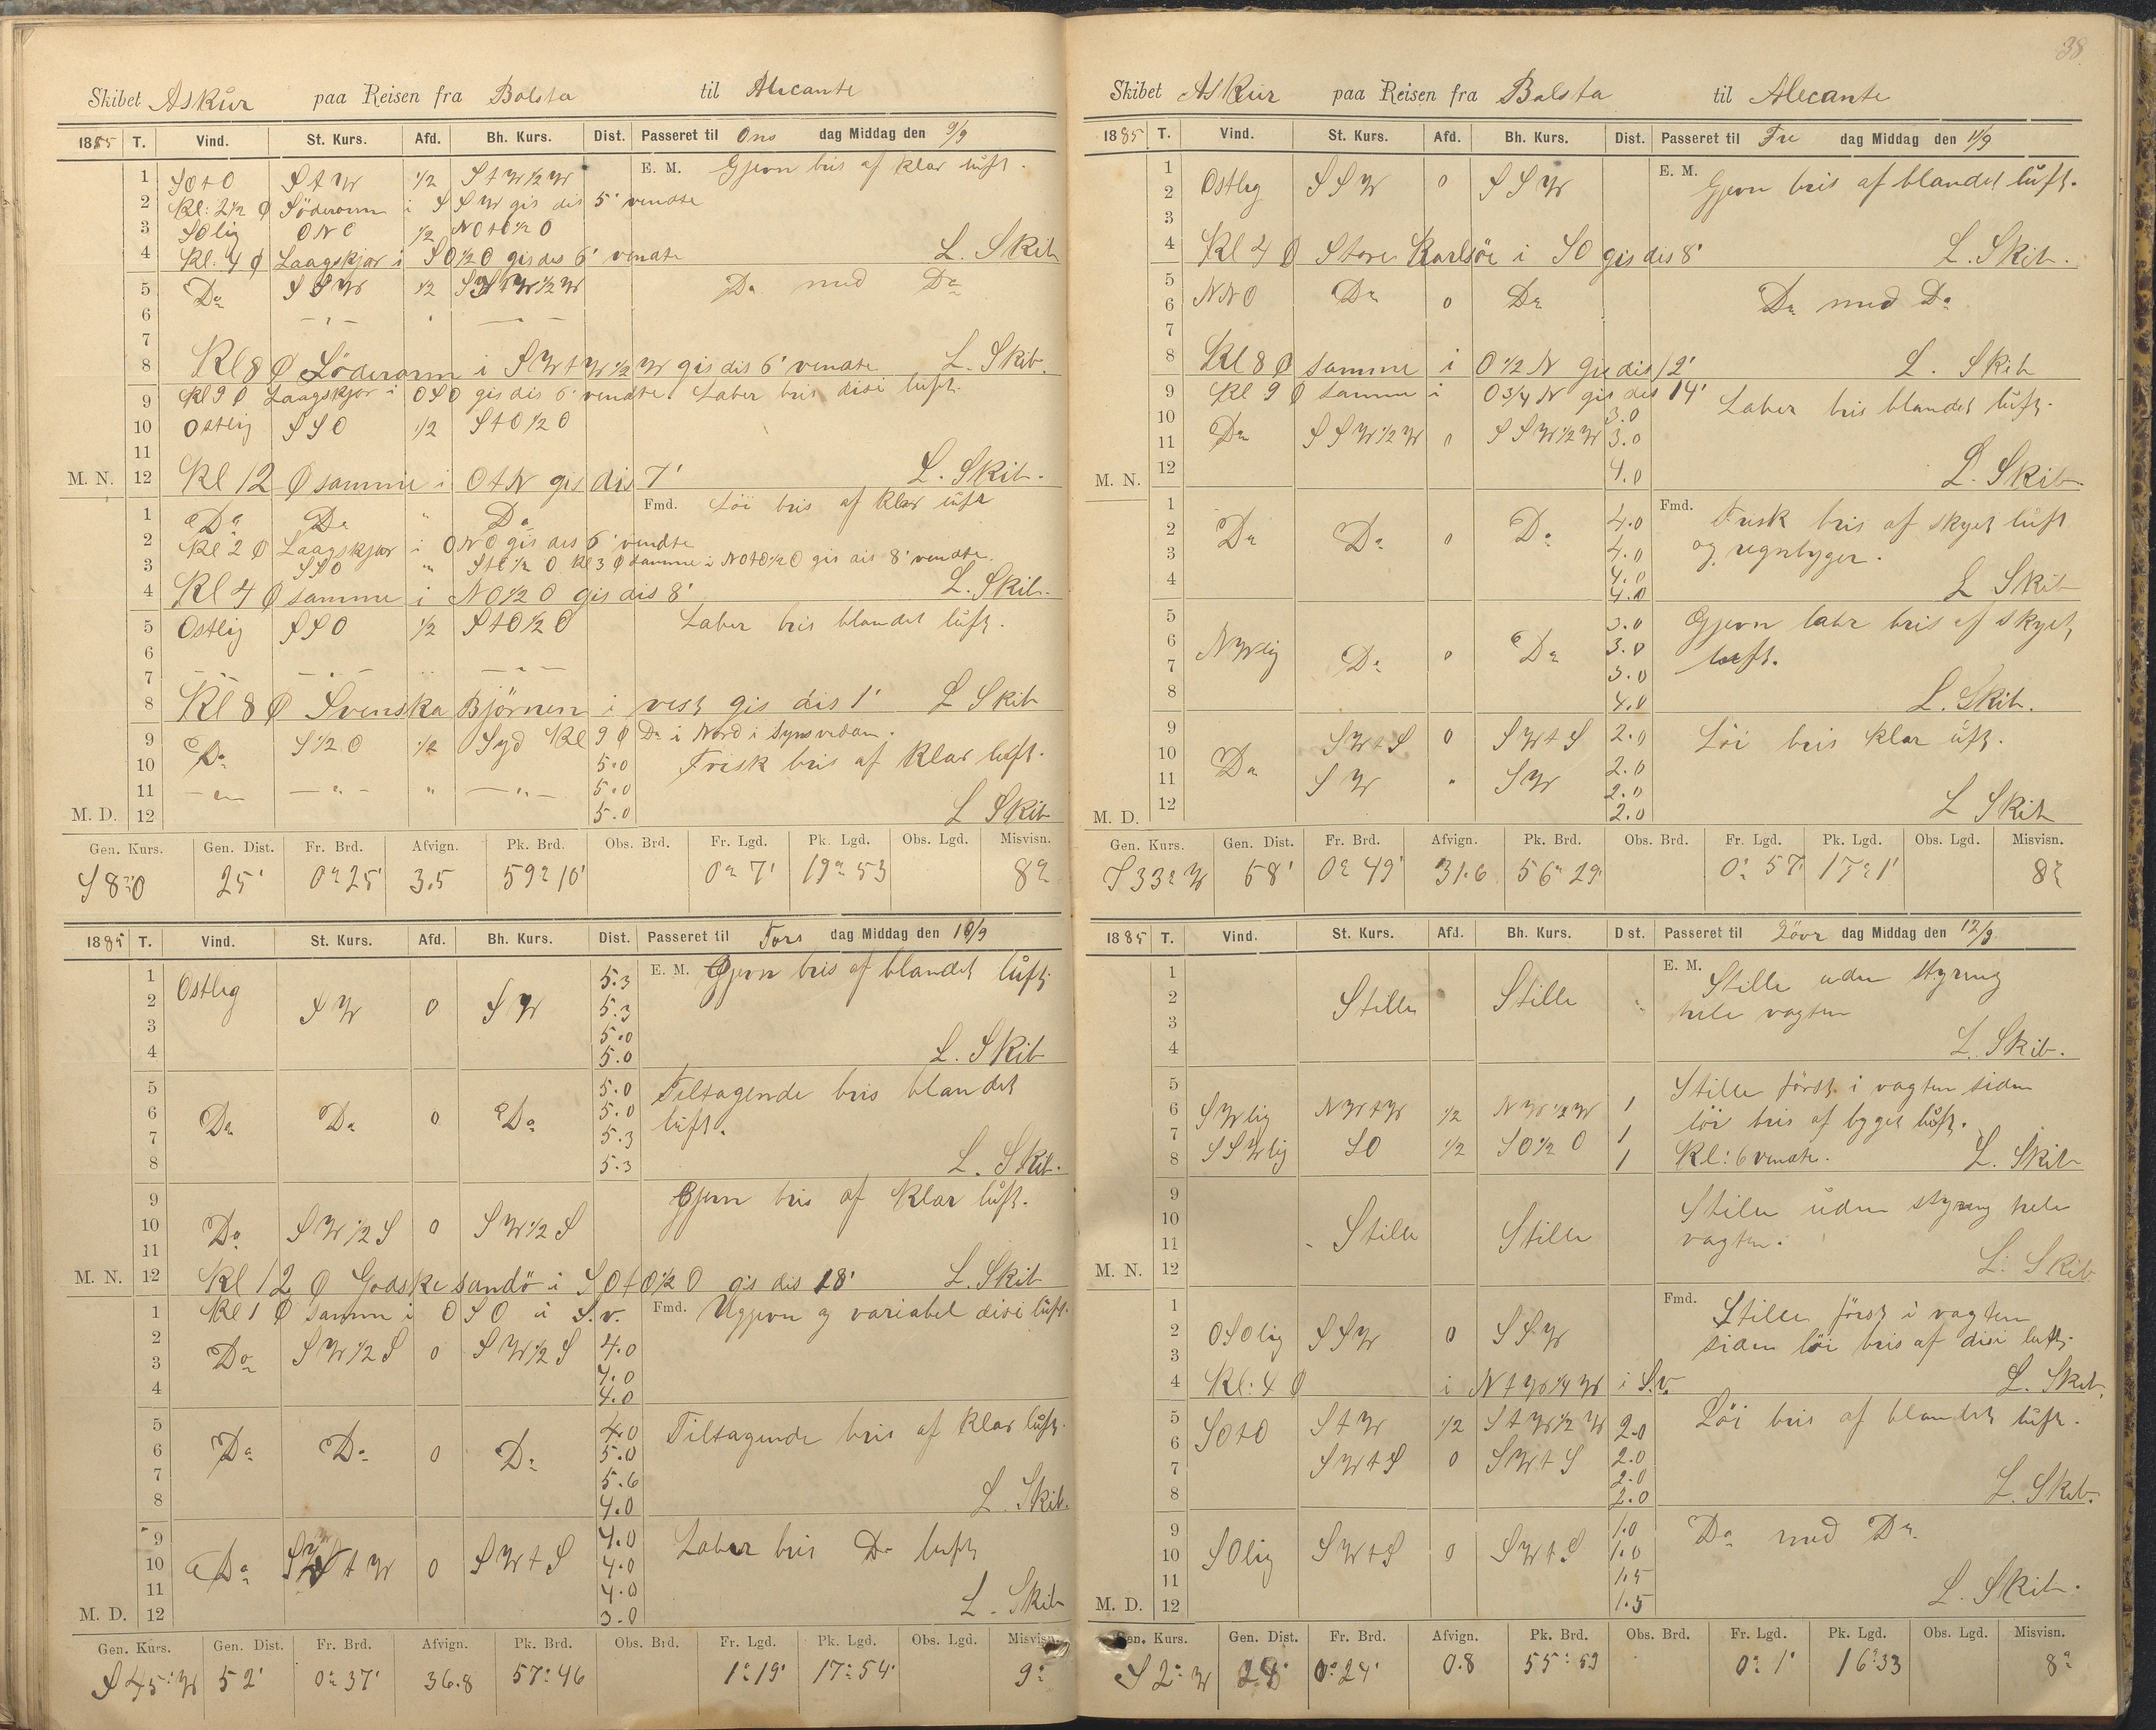 Skibet Askur paa Reisen fra Bolsta til Alicante
1885 T. Vind. St. Kurs. Afd. Bh. Kurs. Dist. Passeret til Ons dag Middag den 9/9
1 SOtO StW 1/2 StW1/2W E. M. Gjevn bris af klar luft.
2 Kl: 2 1/2 Ø Söderarm i SSW gis dis 5' vendte
3 SOlig ONO 1/2 NOtO1/2O
4 Kl. 4 Ø Laagskjær i SO1/2O gis dis 6' vendte L. Skib
5 Do SSW 1/2 StW1/2W Do med Do
6
7
8 Kl 8 Ø Söderarm i SWtW1/2W gis dis 6' vendte L. Skib.
9 Kl 9 Ø Laagskjær i OSO gis dis 6' vendte. Laber bris disi luft.
10 Ostlig SSO 1/2 StO1/2O
11
M. N. 12 Kl 12 Ø samme i OtN gis dis 7' L. Skib.
1 Do Do " Do Fmd. Löi bris af klar luft
2 Kl 2 Ø Laagskjær i ONO gis dis 6' vendte
3 SSO " StO1/2O Kl 3 Ø samme i NOtO1/2O gis dis 8' vendte.
4 Kl 4 Ø samme i NO1/2O gis dis 8' L. Skib.
5 Ostlig SSO 1/2 StO1/2O Laber bris blandet luft.
6
7
8 Kl 8 Ø Svenska Björnen i vest gis dis 1' L Skib
9 Do S1/2O 1/2 Syd Kl 9 Ø Do i Nord i Synsvidden.
10 5.0 Frisk bris af klar luft.
11 5.0
M. D. 12 5.0 L Skib
Gen. Kurs. Gen. Dist. Fr. Brd. Afvign. Pk. Brd. Obs. Brd. Fr. Lgd. Pk. Lgd. Obs. Lgd. Misvisn.
S 8° O 25' 0° 25' 3.5 59° 10' 0° 7' 19° 53 8°
1885 T. Vind. St. Kurs. Afd. Bh. Kurs. Dist. Passeret til Tors dag Middag den 10/9
1 Ostlig 5.3 E. M. Gjevn bris af blandet luft
2 SW 0 SW 5.3
3 5.0
4 5.0 L. Skib
5 5.0 Tiltagende bris blandet
6 Do Do 0 Do 5.0 luft.
7 5.3
8 5.3 L. Skib.
9 Gjevn bris af klar luft.
10 Do SW1/2S 0 SW1/2S
11
M. N. 12 Kl 12 Ø Godske sandö i SOtO1/2O gis dis 18' L. Skib
1 Kl 1 Ø samm i OSO i S.v. Fmd. Ugjevn og variabel disi luft.
2 Do SW1/2S 0 SW1/2S 4.0
3 4.0
4 4.0
5 4.0 Tiltagende bris af klar luft.
6 Do Do 0 Do 5.0
7 5.6
8 4.0 L. Skib.
9 4.0 Laber bris Do luft
10 Do tW 0 SWtS 4.0
11 4.0
M. D. 12 3.0 L. Skib
Gen. Kurs. Gen. Dist. Fr. Brd. Afvign. Pk. Brd. Obs. Brd. Fr. Lgd. Pk. Lgd. Obs. Lgd. Misvisn.
S 45° W 52' 0° 37' 36.8 57° 46 1° 19' 17° 54' 9°
38
Skibet Askur paa Reisen fra Balsta til Alecante
1885 T. Vind. St. Kurs. Afd. Bh. Kurs. Dist. Passeret til Fre dag Middag den 11/9
1 E. M. Gjevn bris af blandet luft.
2 Ostlig SSW 0 SSW
3
4 Kl 4 Ø Store Karlsöe i SO gis dis 8' L. Skib.
5
6 NNO Do 0 Do Do med Do
7
8 Kl 8 Ø samme i O1/2N gis dis 12' L. Skib
9 Kl 9 Ø samme i O3/4N gis dis 14' Laber bris blandet luft.
10 3.0
11 Do SSW1/2W 0 SSW1/2W 3.0
M. N. 12 4.0 L. Skib.
1 4.0 Fmd. Frisk bris af skyet luft
2 Do Do 0 Do 4.0 og regnbyger.
3 4.0
4 4.0 L Skib
5 3.0 Gjevn labr bris af skyet
6 NWlig Do 0 Do 3.0 luft.
7 3.0
8 4.0 L. Skib.
9 SWtS 0 SWtS 2.0 Löi bris klar luft.
10 Do 2.0
11 SW " SW 2.0
M. D. 12 2.0 L Skib
Gen. Kurs. Gen. Dist. Fr. Brd. Afvign. Pk. Brd. Obs. Brd. Fr. Lgd. Pk. Lgd. Obs. Lgd. Misvisn.
S 33° W 58' 0° 49' 31.6 56° 29' 0° 57' 17° 1' 8°
1885 T. Vind. St. Kurs. Afd. Bh. Kurs. Dist. Passeret til Lövr dag Middag den 12/9
1 E. M. Stille uden styring
2 Stille Stille hele vagten
3
4 L. Skib.
5 Stille först i vagten siden
6 SWlig NWtW 1/2 NW1/2W 1 löi bris af byget luft.
7 SSWlig SO 1/2 SO1/2O 1
8 1 Kl: 6 vendte. L. Skib
9 Stille uden styring hele
10 Stille Stille vagten.
11
M. N. 12 L. Skib
1 Fmd. Stille först i vagten
2 OSOlig SSW 0 SSW siden löi bris af disi luft.
3
4 Kl: 4 Ø i NtW1/4W i S.v. L. Skib.
5 SOtO StW 1/2 StW1/2W 2.0 Löi bris af blandet luft.
6 SWtS 0 SWtS 2.0
7 2.0
8 2.0 L. Skib.
9 1.0 Do med Do.
10 SOlig SWtS 0 SWtS 1.0
11 1.5
M. D. 12 1.5 L. Skib.
Gen. Kurs. Gen. Dist. Fr. Brd. Afvign. Pk. Brd. Obs. Brd. Fr. Lgd. Pk. Lgd. Obs. Lgd. Misvisn.
S 2° W 28' 0° 24' 0.8 55° 59 0° 1' 16° 33 8°